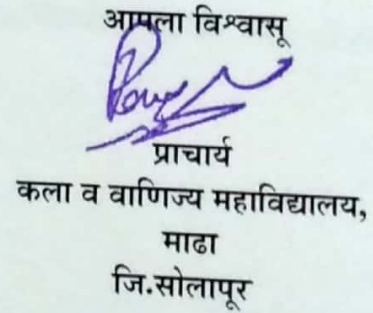 आपला विश्वासू
प्राचार्य
कला व वाणिज्य महाविद्यालय,
माढा
जि.सोलापूर